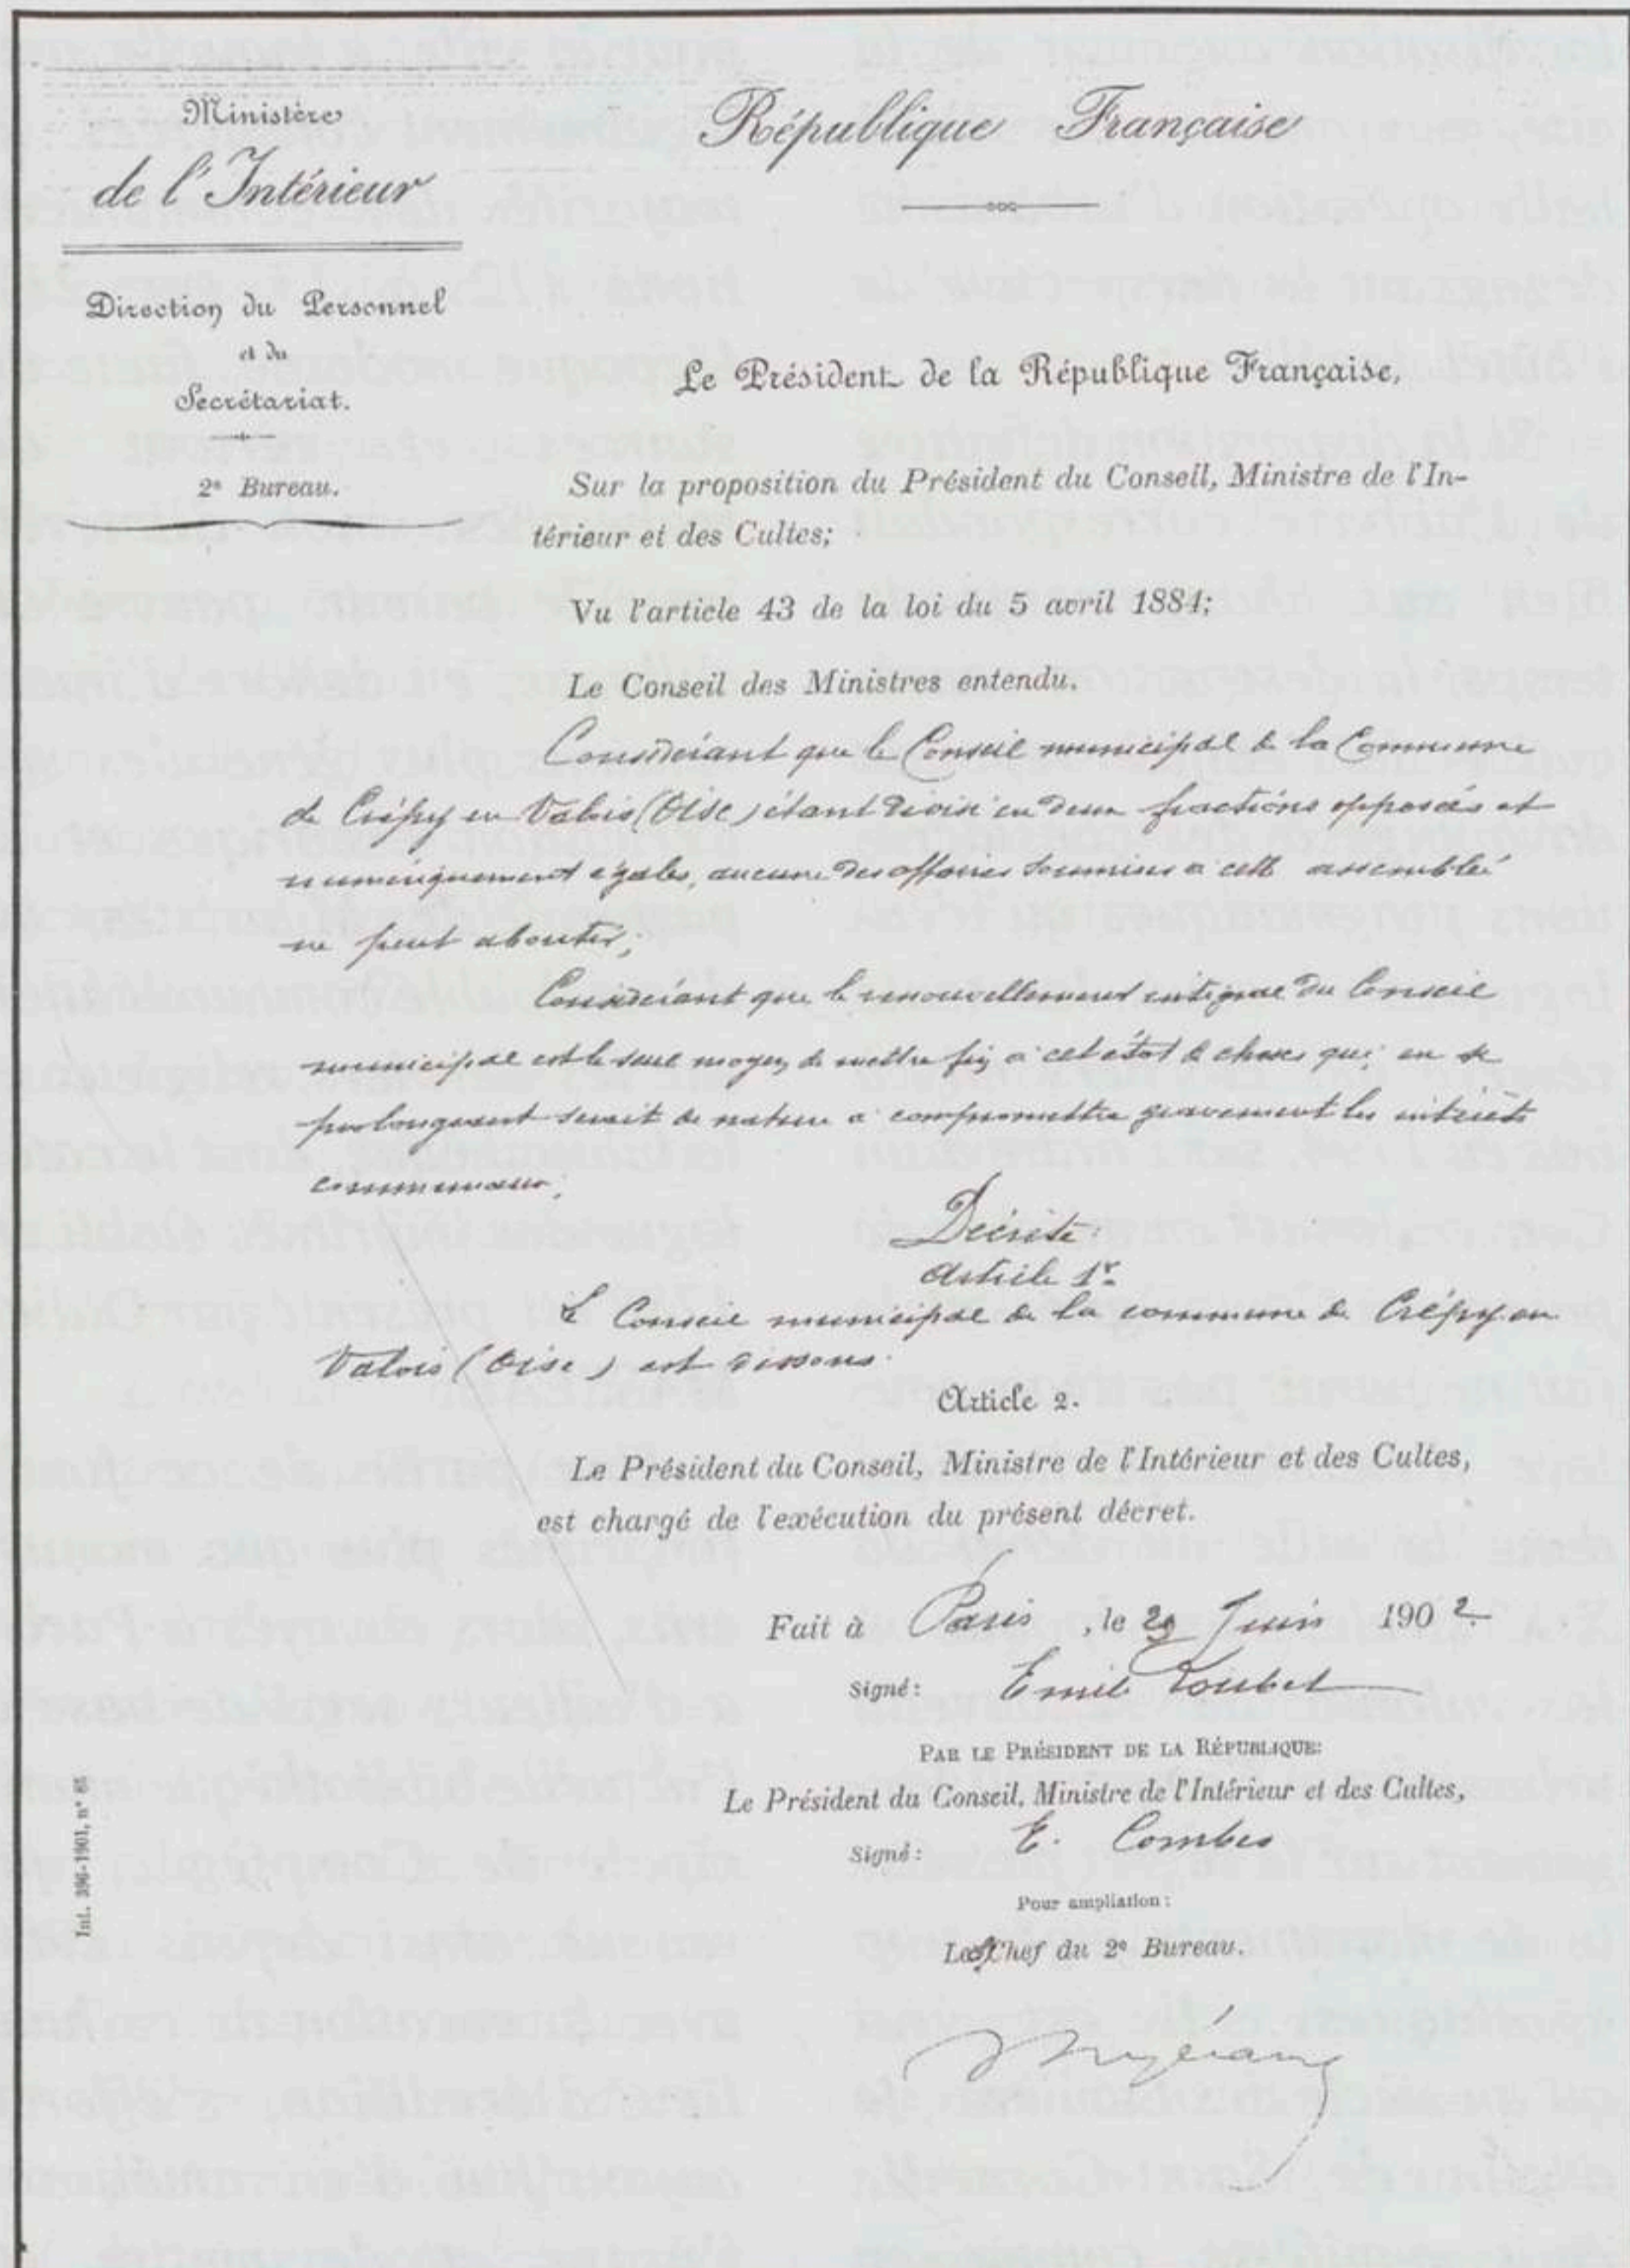 Ministère
de l'Intérieur
Direction du Personnel
et du
Secrétariat.
2e Bureau.
République Française
Le Président de la République Française,
Sur la proposition du Président du Conseil, Ministre de l'In-
térieur et des Cultes;
Vu l'article 43 de la loi du 5 avril 1884;
Le Conseil des Ministres entendu.
Considérant que le Conseil municipal de la Commune
de Crépy en Valois (Oise) étant divisé en deux fractions opposées et
numériquement égales, aucune des affaires soumises à cette assemblée
ne peut aboutir;
Considérant que le renouvellement intégral du Conseil
municipal est le seul moyen de mettre fin à cet état de choses qui, en se
prolongeant serait de nature à compromettre gravement les intérêts
communaux;
Décrète:
Article 1er
Le Conseil municipal de la commune de Crépy en
Valois (Oise) est dissous.
Article 2.
Le Président du Conseil, Ministre de l'Intérieur et des Cultes,
est chargé de l'exécution du présent décret.
Fait à Paris, le Juin 1902
Signé: Emile Loubet
PAR LE PRÉSIDENT DE LA RÉPUBLIQUE:
Le Président du Conseil, Ministre de l'Intérieur et des Cultes,
Signé: E. Combes
Pour ampliation:
Le Chef du 2e Bureau.
Int. 396-1901, n° 85